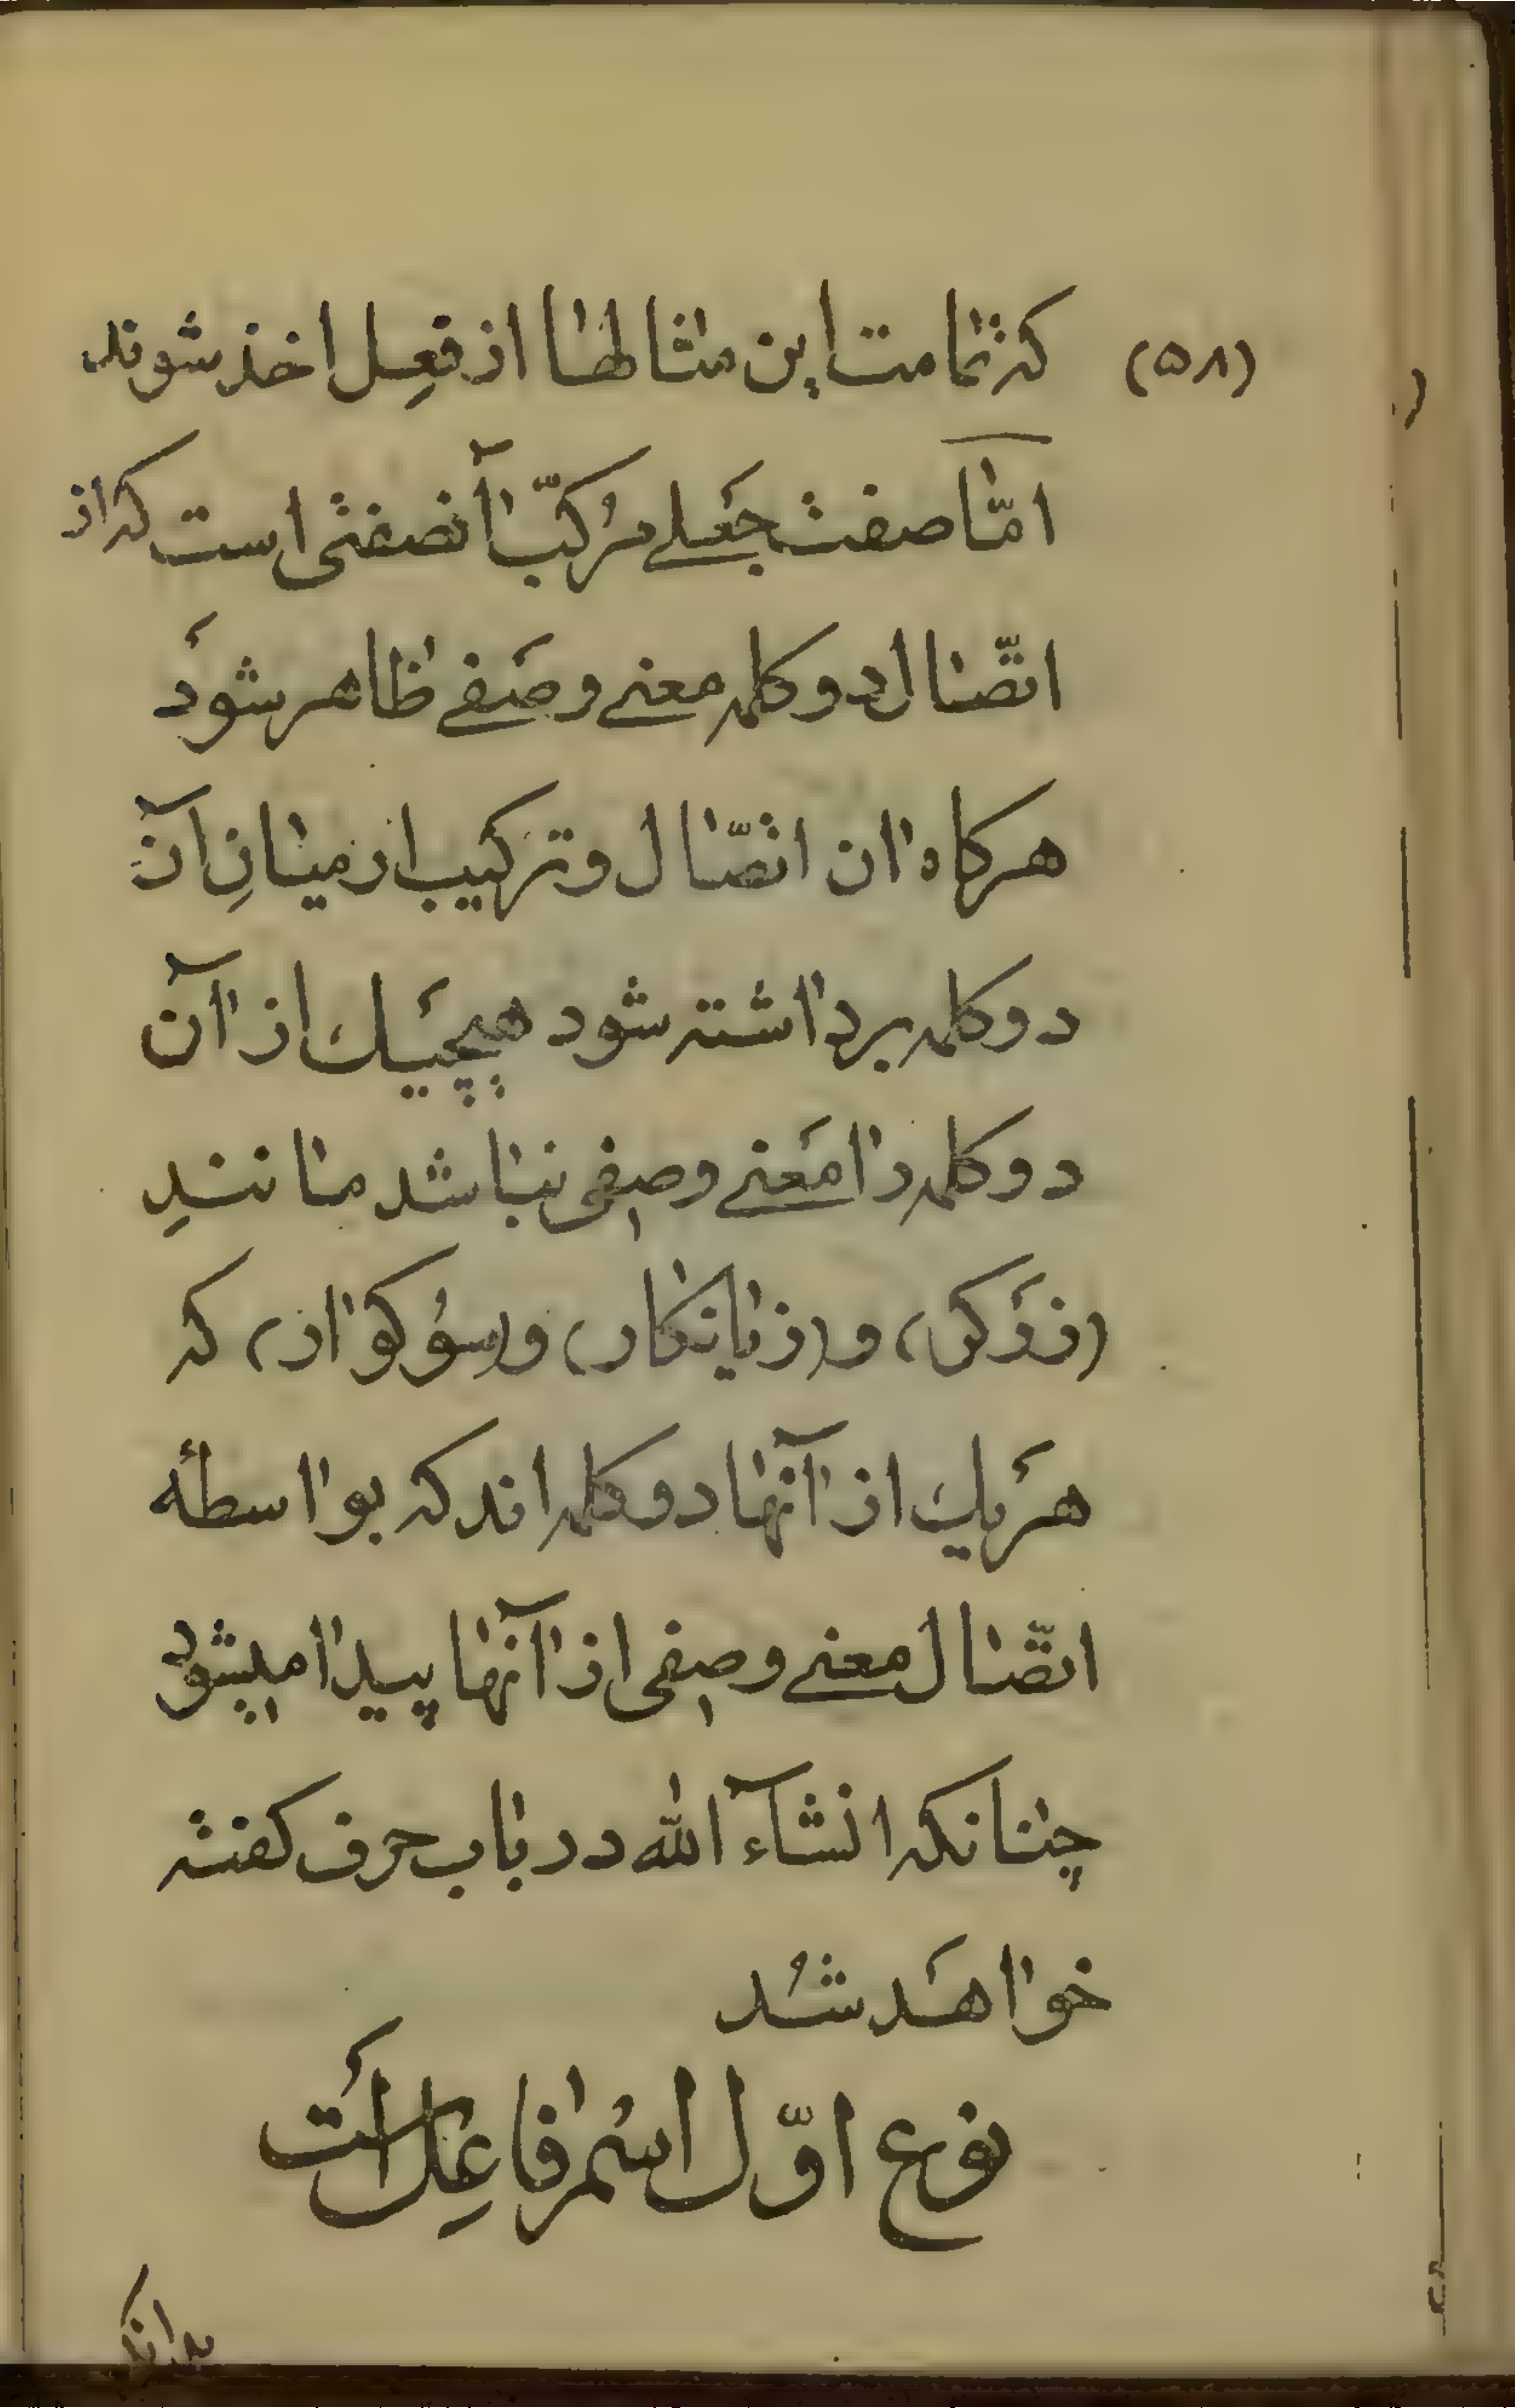 (۵۸) که تمامت این مثالها از فعِل اخذ شوند
امّا صفت جَعلے مُرکّب آنصفتی است که از
اتّصال دو کلمه معنے وصَفے ظاهر شوَد
هرکاه ان اتّصال و ترکیب از میانِ آن
دو کلمه برداشته شود هیچیَک از آن
دو کلمه را مَعنے وصِفی نباشد مانندِ
(زرَکر) و (زیانکار) و (سوُکوار) که
هرَیک از آنها دو کلمه اند که بواسطهٔ
اتّصال معنے وصِفی از آنها پیدا میشود
چنانکه انشآء الله در باب حرف کفته
خواهَد شُد
نوع اوّل اسُم فاعِل اَست
بدانکه